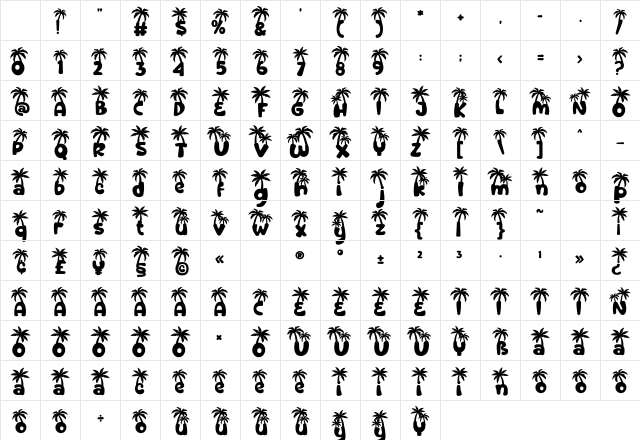 ! " # $ % & ' ( ) * + , - . /
0 1 2 3 4 5 6 7 8 9 : ; < = > ?
@ A B C D E F G H I J K L M N O
P Q R S T U V W X Y Z [ \ ] ^ _
a b c d e f g h i j k l m n o p
q r s t u v w x y z { | } ~ ¡
¢ £ ¥ § © « ® ° ± ² ³ · ¹ » ¿
A A A A A A C E E E E I I I I N
O O O O O × O U U U U Y ß a a a
a a a c e e e e i i i i n o o o
o o ÷ o u u u u y y y